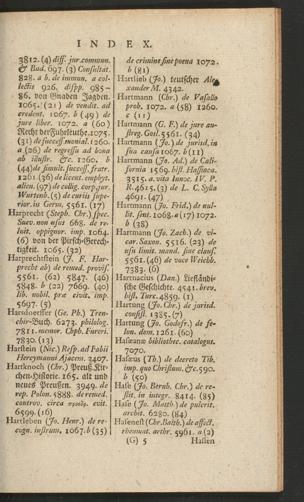 INDEX.
3812. (4) diss. jur. commun.
& Bad. 697. (3) Consultat.
828. a b. de immun. a col-
lectis 926. disp. 985—
86. von Gnaden Jagden.
1065. (21) de vendit. ad
credent. 1067. b (49) de
jure liber. 1072. a (60)
Recht der Fuhrleuthe. 1075.
(31) de success. monial. 1260.
a (26) de regressu ad bona
ab illustr. &c. 1260. b
(44) de simult. success. fratr.
1261 (36) de licent. emphyt.
alien. (97) de collig. corp. jur.
Wurtenb. (5) de curiis supe-
rior. in Germ. 5561. (17)
Harprecht (Steph. Chr.) spec.
Suev. non usus 668. de re-
luit. oppignor. imp. 1064.
(6) von der Pirsch-Gerech-
tigkeit. 1065. (32)
Harprechtstein (J. F. Har-
precht ab) de remed. provis.
5561. (62) 5847. (46)
5848. b (22) 7669. (40)
lib. nobil. præ civit. imp.
5697. (5)
Harsdoerffer (Ge. Ph.) Tren-
chir-Buch. 6273. philolog.
7811. mercur. Chph. Fureri.
7830. (13)
Harstein (Nic.) Resp. ad Fabii
Hercynianii Ajacem. 3407.
Hartknoch (Chr.) Preuß. Kir-
chen-Historie. 165. alt und
neues Preußen. 3949. de
rep. Polon. 5888. de remed.
controv. circa evit.
6599. (16)
Hartleben (Jo. Henr.) de re-
cogn. instrum. 1067. b (35)
de crimine sine poena 1072.
b (81)
Hartlieb (Jo.) teutscher Ale-
xander M. 4342.
Hartmann (Chr.) de Vasallo
prob. 1072. a (58) 1260.
c (11)
Hartmann (G. F.) de jure au-
streg. Goel. 5561. (34)
Hartmann (Jo.) de jurisd. in
sua causa 1067. b (11)
Hartmann (Jo. Ad.) de Cali-
fornia 1569. hist. Hassiaca.
3515. a. vita Innoc. IV. P.
R. 4615. (3) de L. C. Sylla
4691. (47)
Hartmann (Jo. Frid.) de nul-
lit. sent. 1068. a (17) 1072.
b (38)
Hartmann (Jo. Zach.) de vi-
car. Saxon. 5516. (23) de
usu limit. mand. sine claus.
5561. (46) de voce Weichb.
7383. (6)
Hartnacius (Dan.) Liefländi-
sche Geschichte. 4541. brev.
hist. Turc. 4859. (1)
Hartung (Jo. Chr.) de jurisd.
consist. 1385. (7)
Hartung (Jo. Godofr.) de fe-
lon. dom. 1261. (60)
Hasæanæ bibliothec. catalogus.
7070.
Hasæus (Th.) de decreto Tib.
imp. quo Christum. &c. 590.
b (50)
Hase (Jo. Bernh. Chr.) de re-
stit. in integr. 8414. (85)
Hase (Jo. Matth.) de puicrit.
archit. 6280. (84)
Hasenest (Chr. Balth.) de affect.
rheumat. arthr. 5961. a. (2)
(G) 5 Hasien